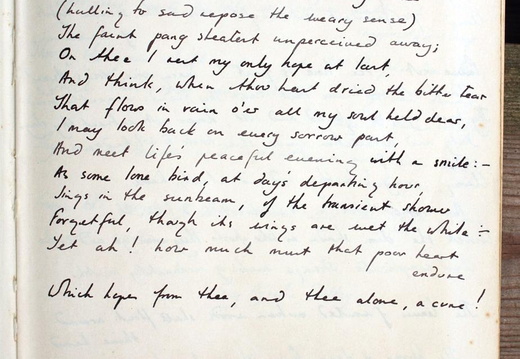 (Lulling to sad repose the weary sense)
The faint pang stealest unperceived away;
On thee I rest my only hope at last,
And think, when thou hast dried the bitter tear
That flows in vain o'er all my soul held dear,
I may look back on every sorrow past,
And meet life's peaceful evening with a smile:-
As some lone bird, at day's departing hour,
Sings in the sunbeam, of the transient shower
Forgetful, though its wings are wet the while:-
Yet ah! how much must that poor heart
endure
Which hopes from thee, and thee alone, a cure!